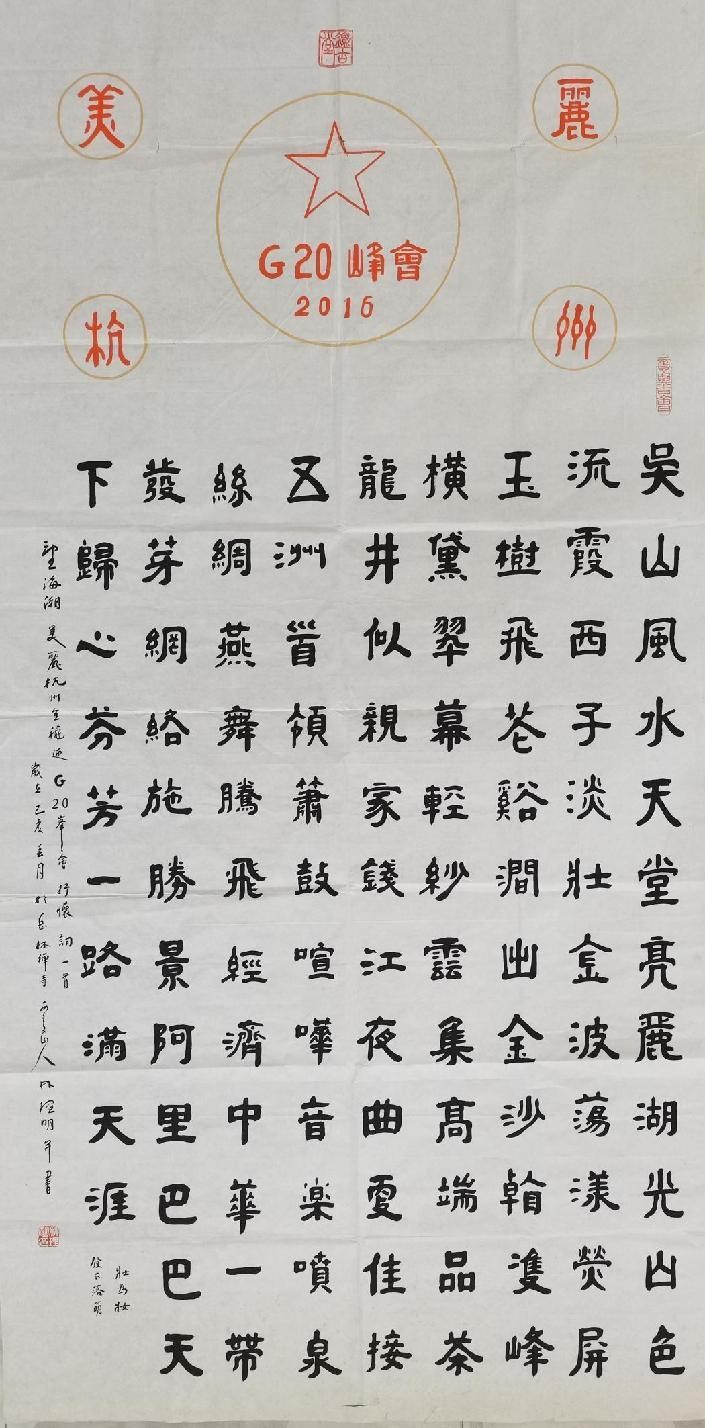 美麗
G20峰會
2016
杭州
吳山風水天堂亮麗湖光山色
流霞西子淡壯金波蕩漾熒屏
玉樹飛花谿澗出金沙雙峰
橫黛翠幕輕紗雲集高端品茶
龍井似親家錢江夜曲更佳接
五洲首領簫鼓喧嘩音楽噴泉
絲綢燕舞騰飛經濟中華一帶
發芽網絡施勝景阿里巴巴天
下歸心芬芳一路滿天涯
望海潮 美麗杭州迎G20峯會抒懷詞一首
歲在己亥月於林禪寺山人明書
壯為妝
佳下落